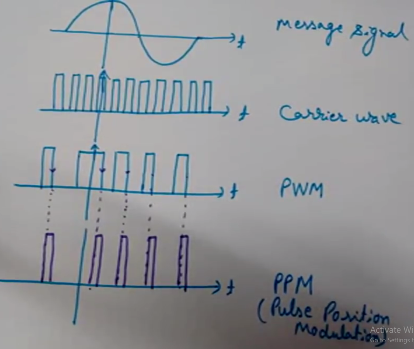 t
Message signal
t
Carrier wave
t
PWM
t
PPM
(Pulse Position
Modulation)
Activate Wi
Go to Settings t